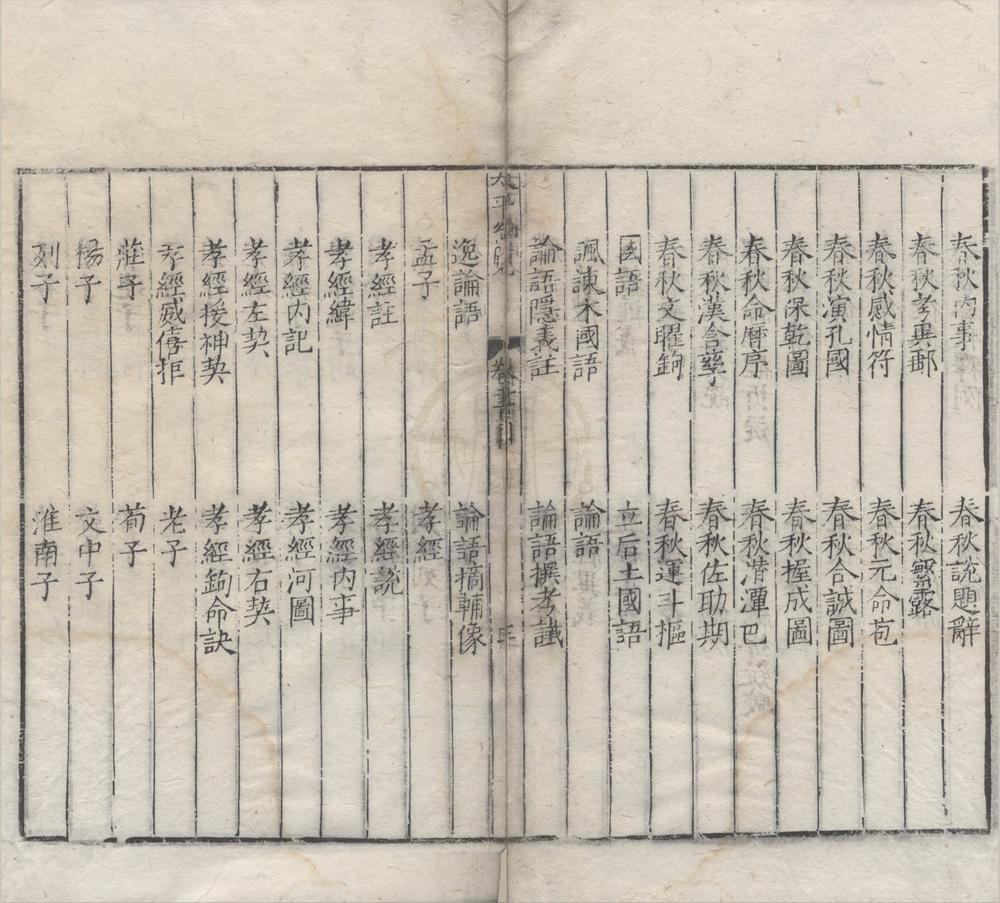 春秋内事　春秋說題辭
春秋考異郵　春秋繁露
春秋感情符　春秋元命苞
春秋演孔國　春秋合誠圖
春秋保乾圖　春秋握成圖
春秋命曆序　春秋潛潭巴
春秋漢含孳　春秋佐助期
春秋文曜鉤　春秋運斗樞
國語　立后土國語
諷諫木國語　論語
論語隱義註　論語撰考讖
太平御覽　卷書目
逸論語　論語摘輔像
孟子　孝經
孝經註　孝經說
孝經緯　孝經内事
孝經内記　孝經河圖
孝經左契　孝經右契
孝經援神契　孝經鉤命訣
孝經威僖拒　老子
莊子　荀子
楊子　文中子
列子　淮南子